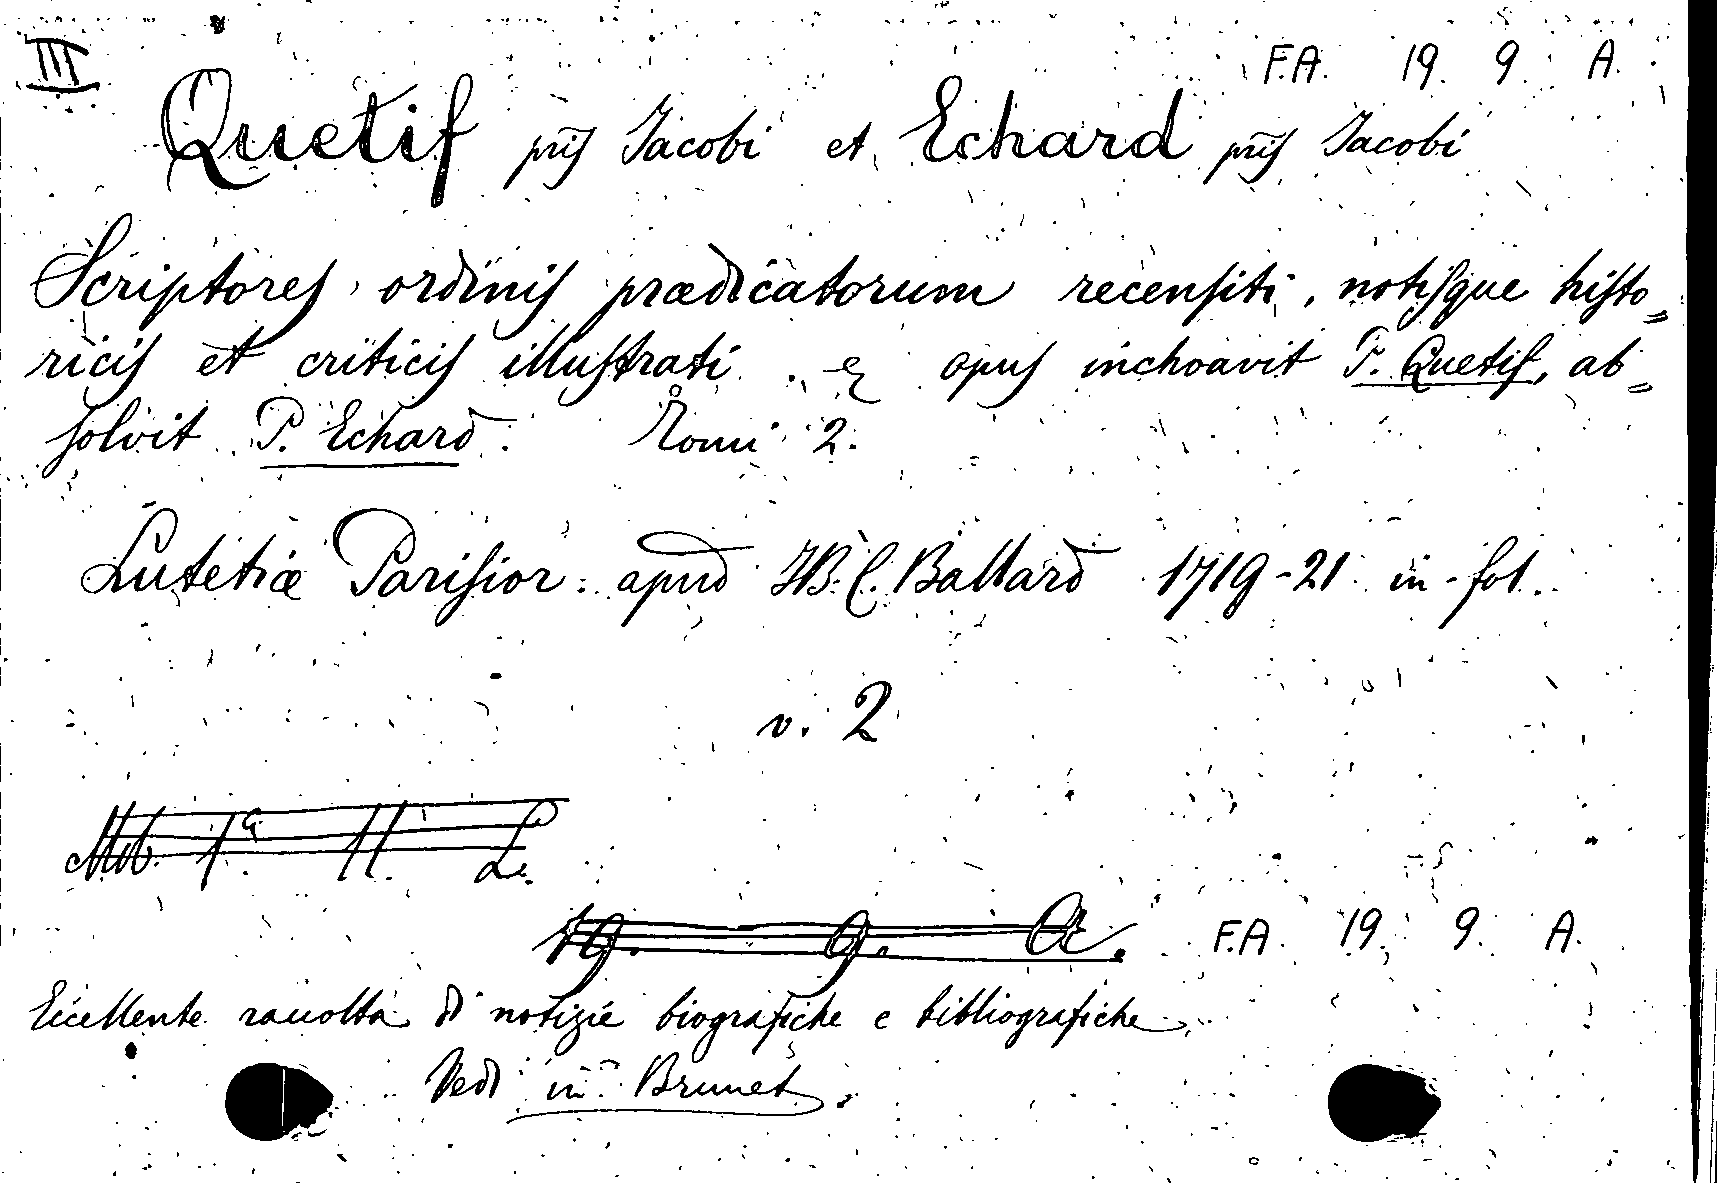 III
F.A. 19. 9. A.
Quetif p̃ris Jacobi et Echard p̃ris Jacobi
Scriptores ordinis prædicatorum recensiti, notisque histo=
ricis et criticis illustrati. & opus inchoavit P. Quetif, ab=
solvit P. Echard. Tomi 2.
Lutetiæ Parisior. apud J.B.C. Ballard 1719-21 in-fol.
v. 2
Mob. 1ª 11. L.
19. 9. A. F.A. 19. 9. A.
Eccellente raccolta di notizie biografiche e bibliografiche
Vedi in Brunet.